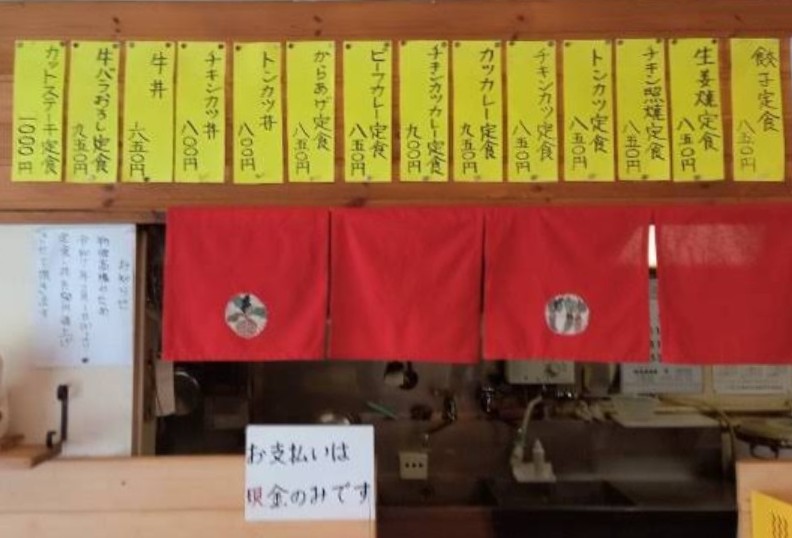 餃子定食 八五〇円
生姜焼定食 八五〇円
チキン照焼定食 八五〇円
トンカツ定食 八五〇円
チキンカツ定食 八五〇円
カツカレー定食 九五〇円
チキンカツカレー定食 九〇〇円
ビーフカレー定食 八五〇円
からあげ定食 八五〇円
トンカツ丼 八〇〇円
チキンカツ丼 八〇〇円
牛丼 六五〇円
牛バラおろし定食 九五〇円
カットステーキ定食 1000円
お知らせ
物価高騰のため
させて頂きます
お支払いは
現金のみです